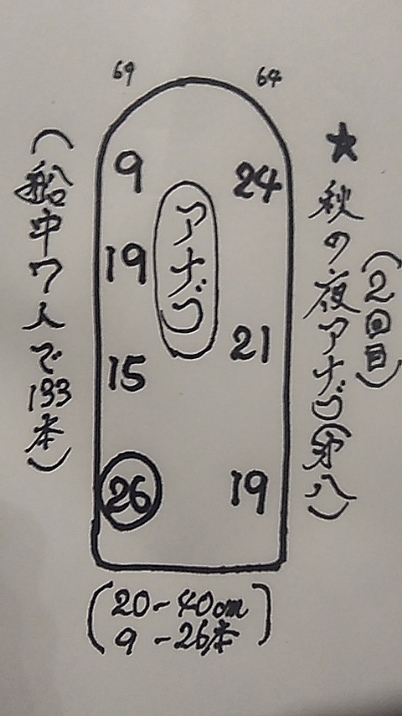 ★秋の夜アナゴ(第八)
(2回目)
69
64
9
24
アナゴ
19
21
15
26
19
(船中7人で133本)
(20-40cm
9-26本)